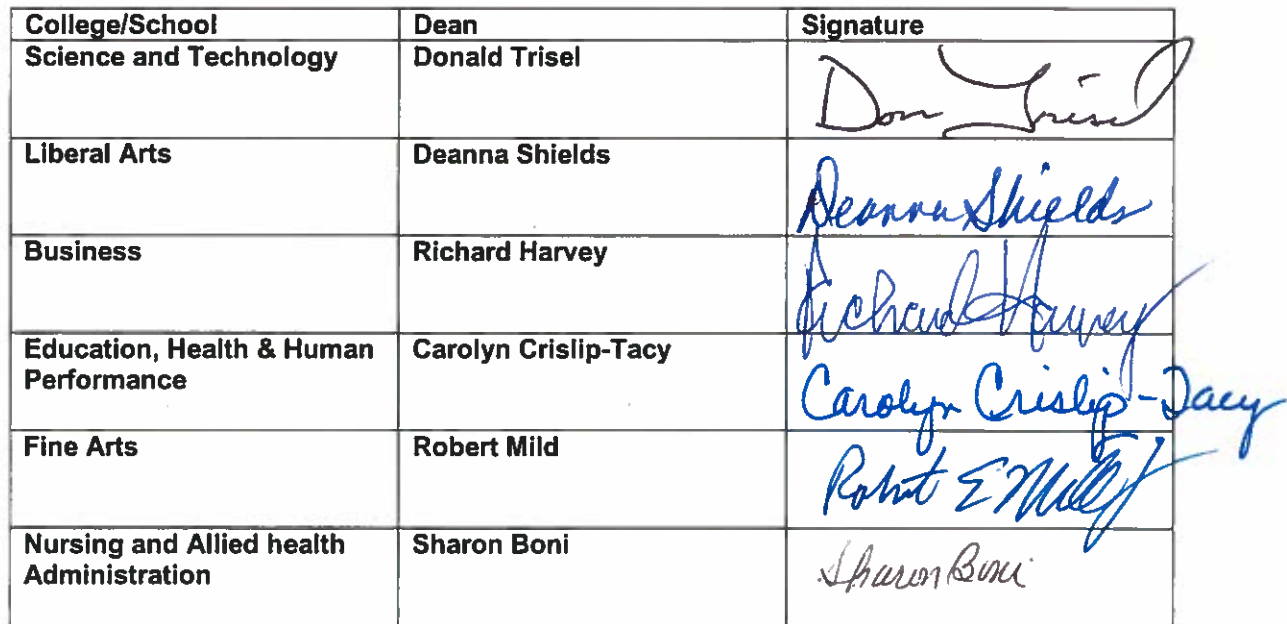 College/School Dean Signature
Science and Technology Donald Trisel Don Trisel
Liberal Arts Deanna Shields Deanna Shields
Business Richard Harvey Richard Harvey
Education, Health & Human Carolyn Crislip-Tacy Carolyn Crislip-Tacy
Performance
Fine Arts Robert Mild Robert E Mild Jr
Nursing and Allied health Sharon Boni Sharon Boni
Administration